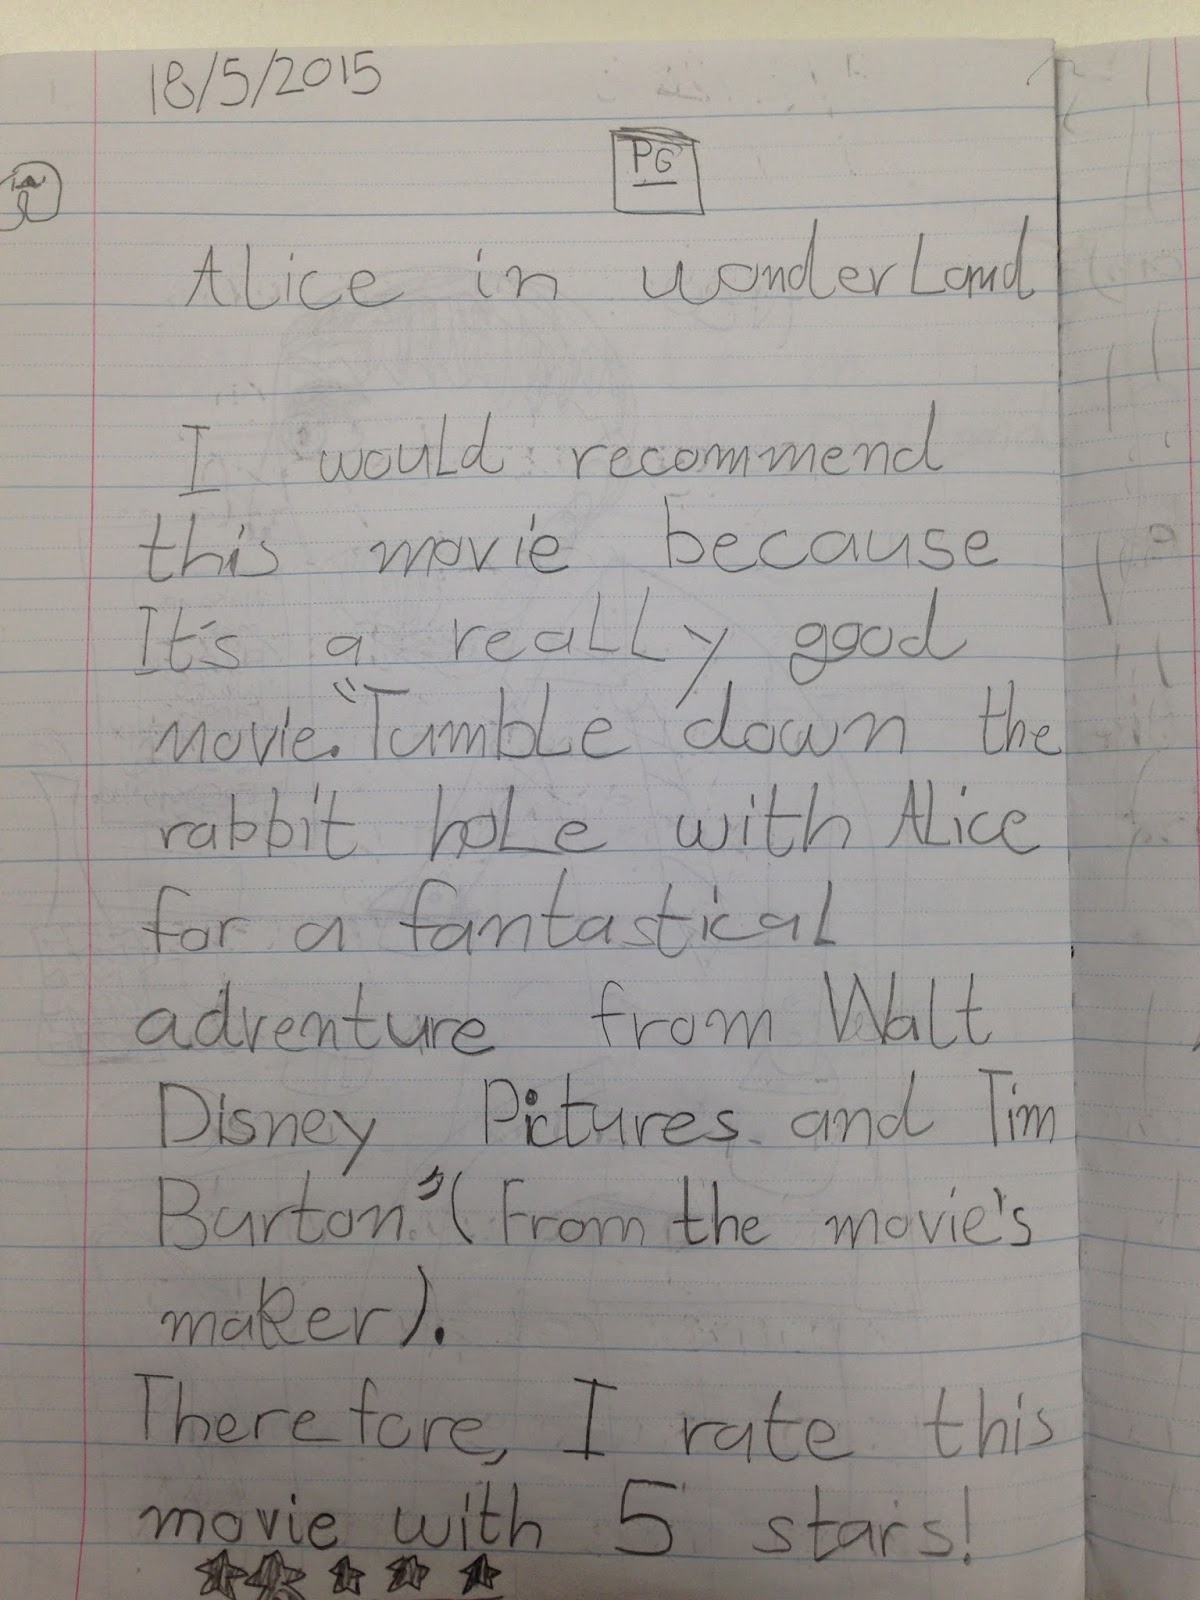 18/5/2015
PG
Alice in wonderLand
I would recommend
this movie because
It's a reaLLy good
movie. "TumbLe down the
rabbit hoLe with ALice
for a fantasticaL
adventure from Walt
Disney Pictures and Tim
Burton" (From the movie's
maker).
Therefore, I rate this
movie with 5 stars!